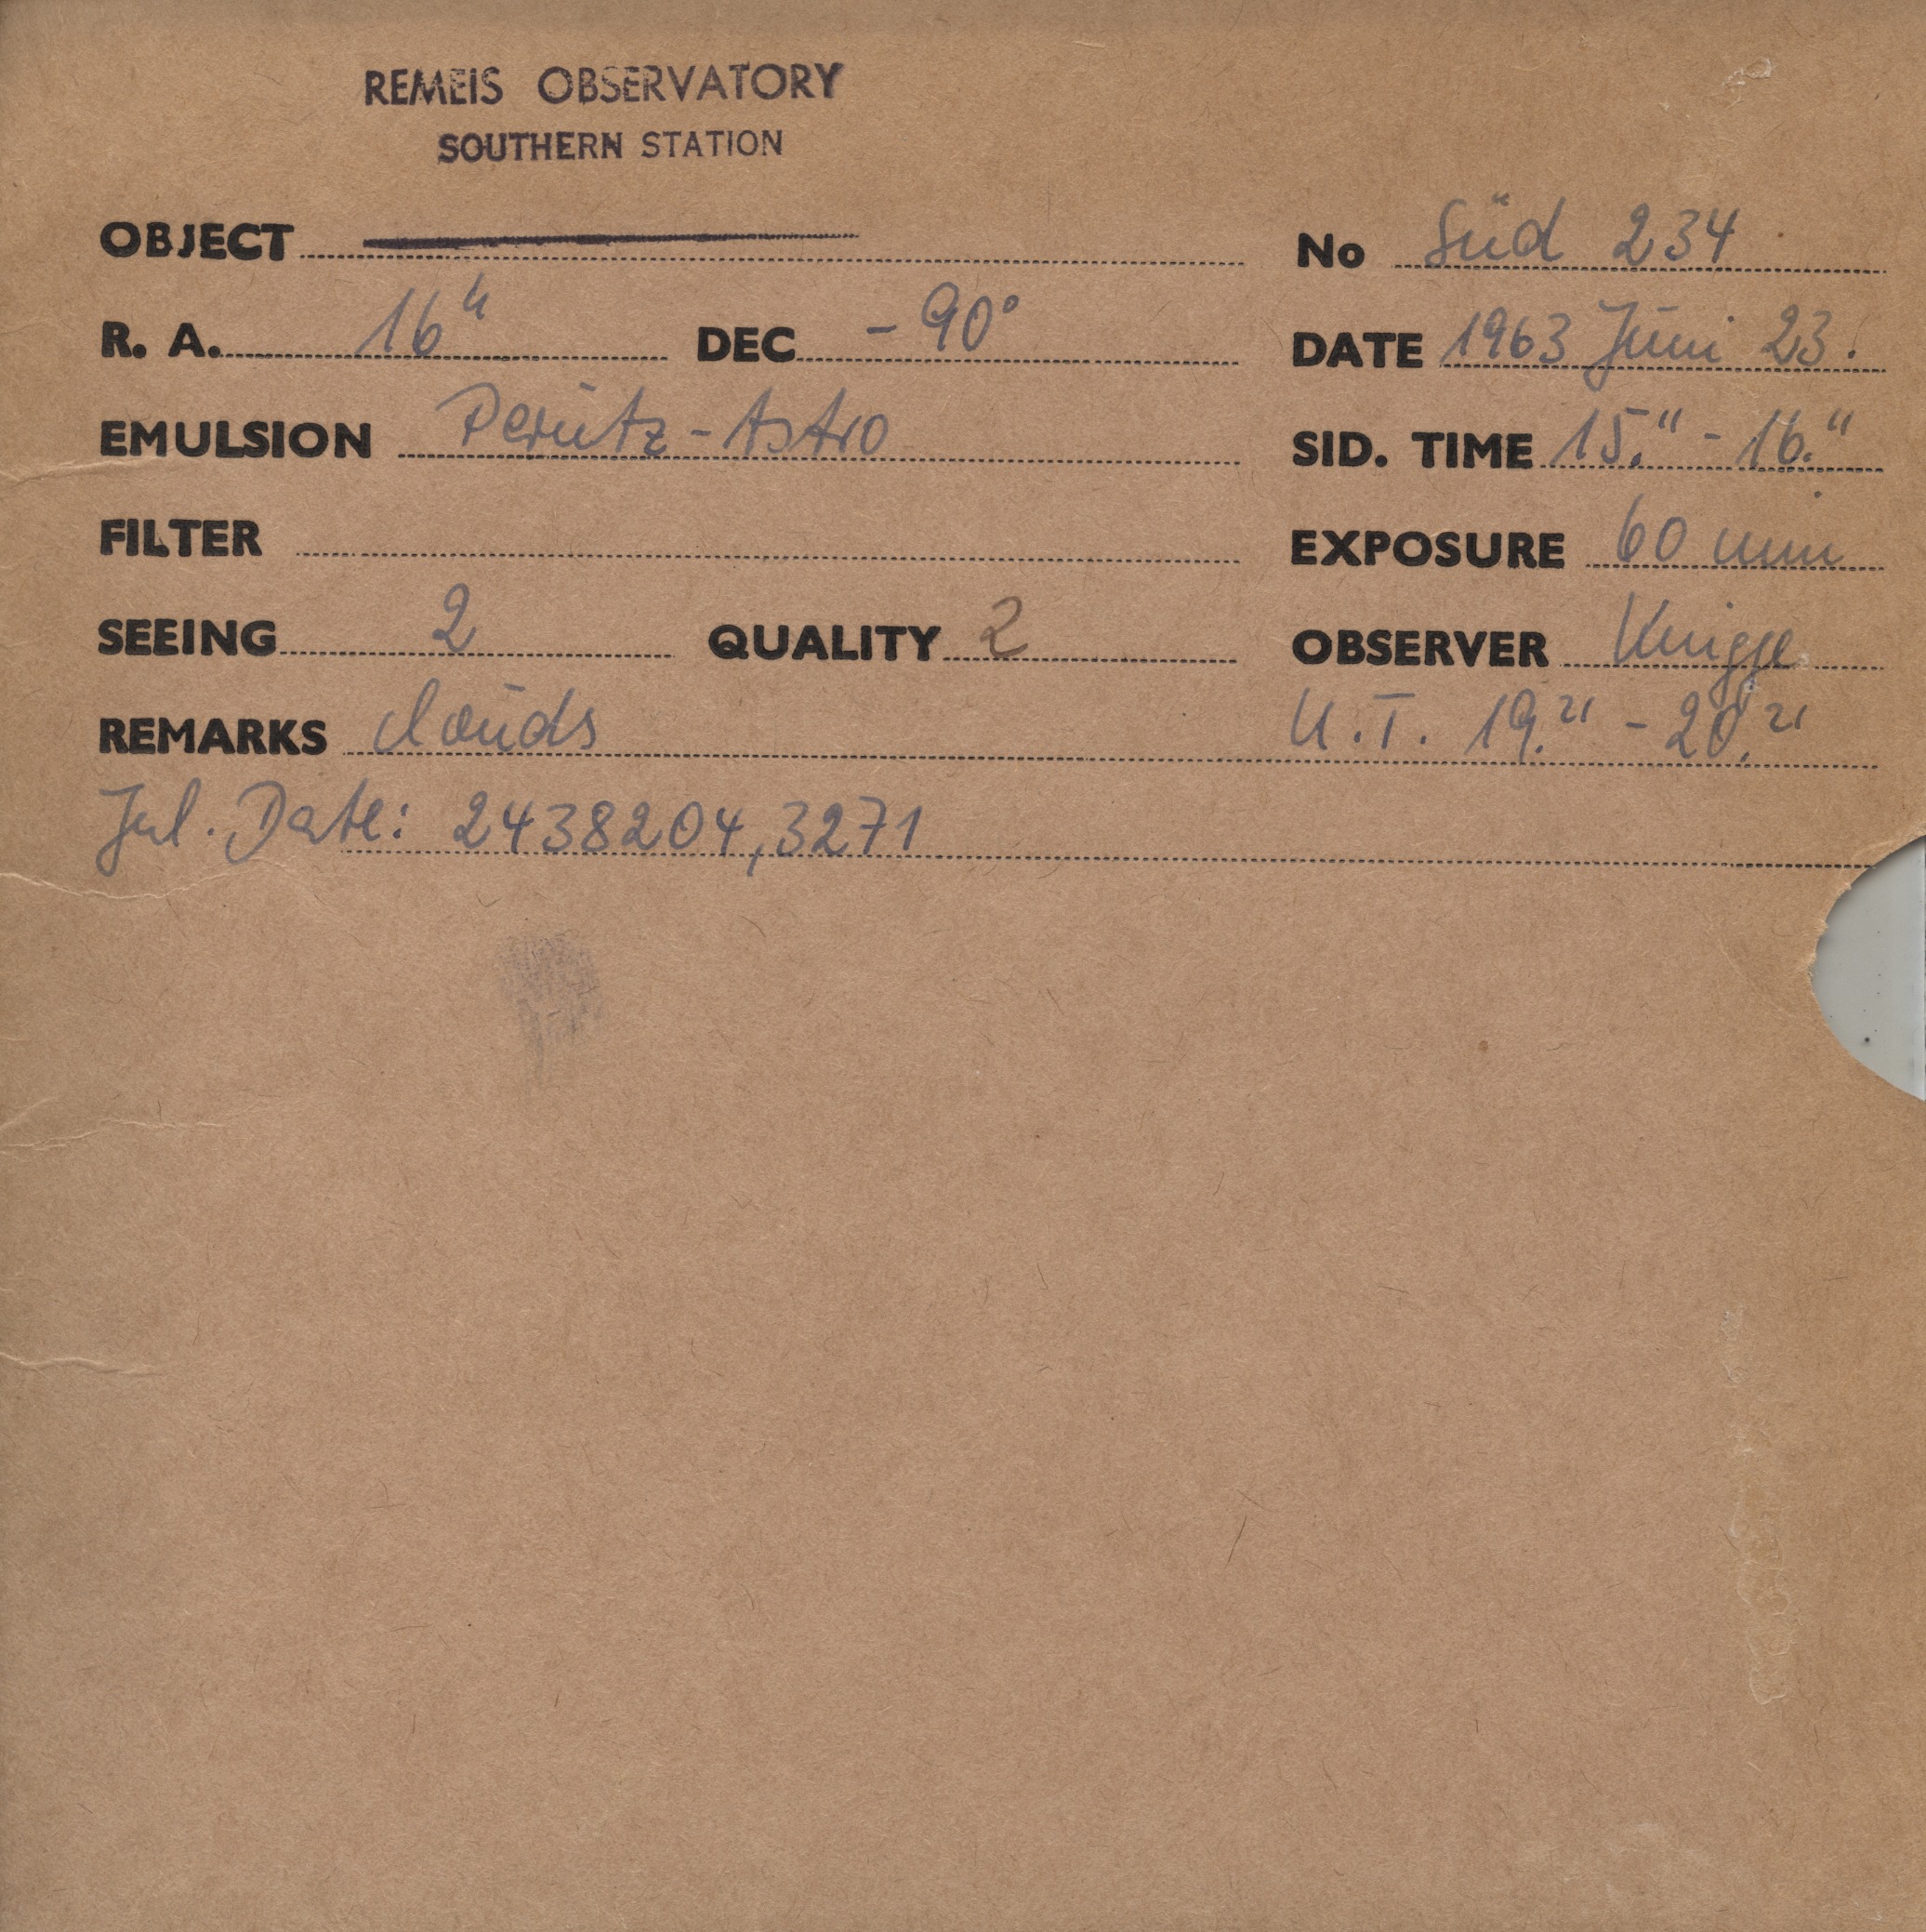 REMEIS OBSERVATORY
SOUTHERN STATION
OBJECT No Süd 234
R. A. 16h DEC -90° DATE 1963 Juni 23.
EMULSION Perutz-Astro SID. TIME 15.11 - 16.11
FILTER EXPOSURE 60 min
SEEING 2 QUALITY 2 OBSERVER Knigge
REMARKS clouds U.T. 19.21 - 20.21
Jul. Date: 2438204,3271